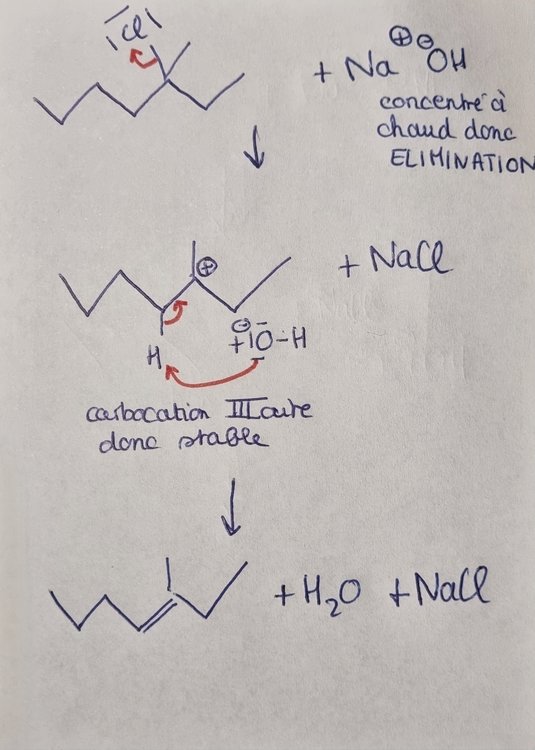 Cl
+ Na⊕ ⊖OH
concentré à
chaud donc
ELIMINATION
⊕
+ NaCl
⊖
H + |O-H
carbocation IIIaire
donc stable
+ H₂O + NaCl